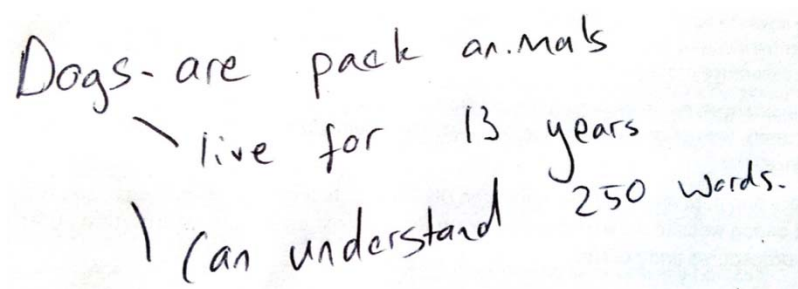 Dogs - are pack animals
\ live for 13 years
\ Can understand 250 words.